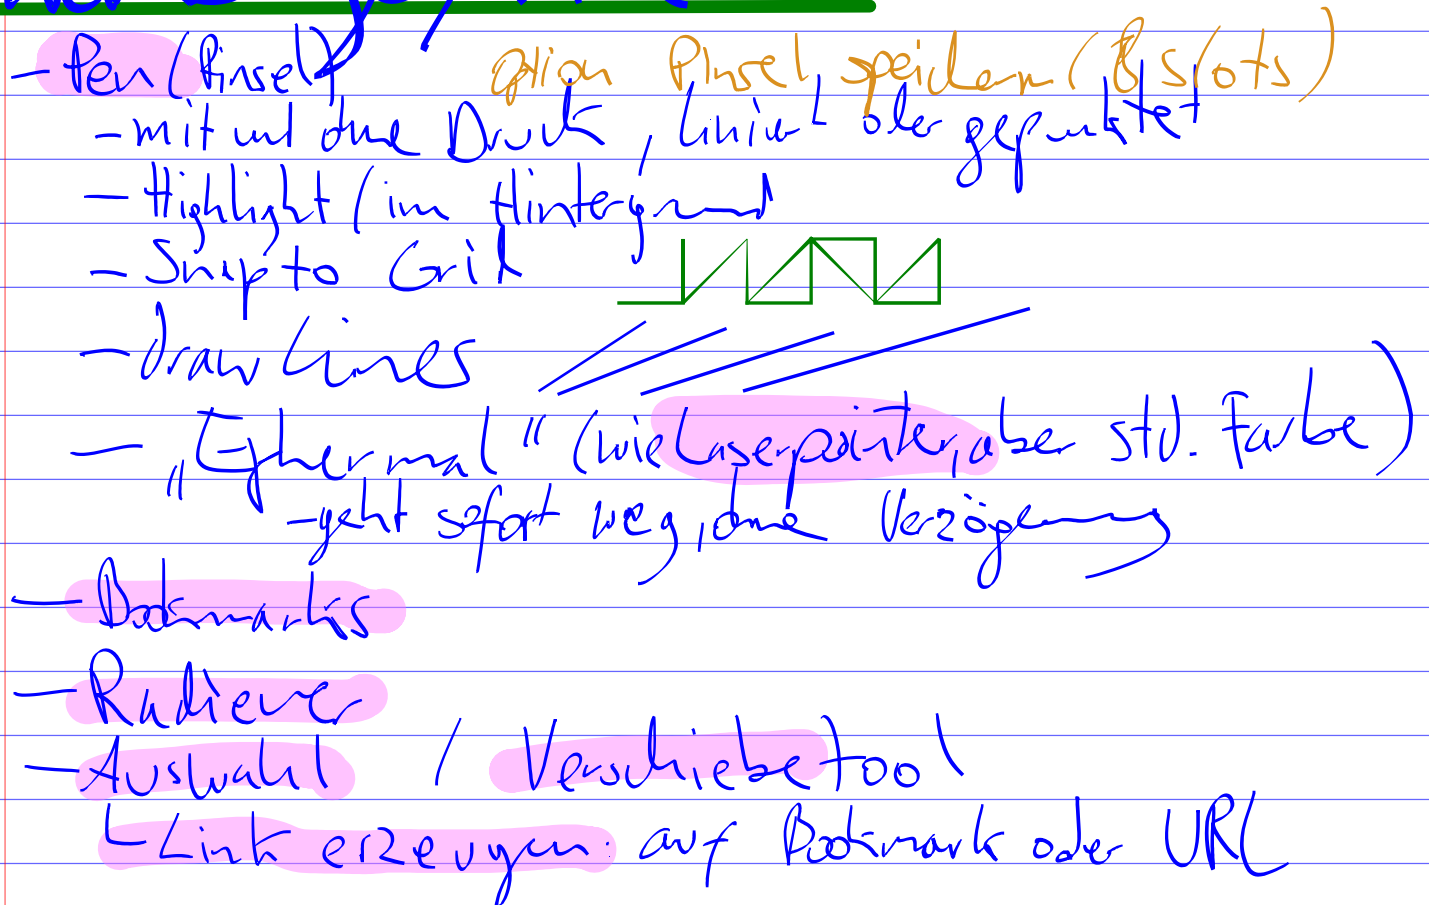 - Pen (Pinsel) Option Pinsel speichern (8 Slots)
- mit und ohne Druck, liniert oder gepunktet
- Highlight / im Hintergrund
- Snap to Grid
- draw Lines
- „Ephermal“ (wie Laserpointer, aber std. Farbe)
- geht sofort weg, ohne Verzögerung
- Bookmarks
- Radierer
- Auswahl / Verschiebetool
Link erzeugen: auf Bookmark oder URL